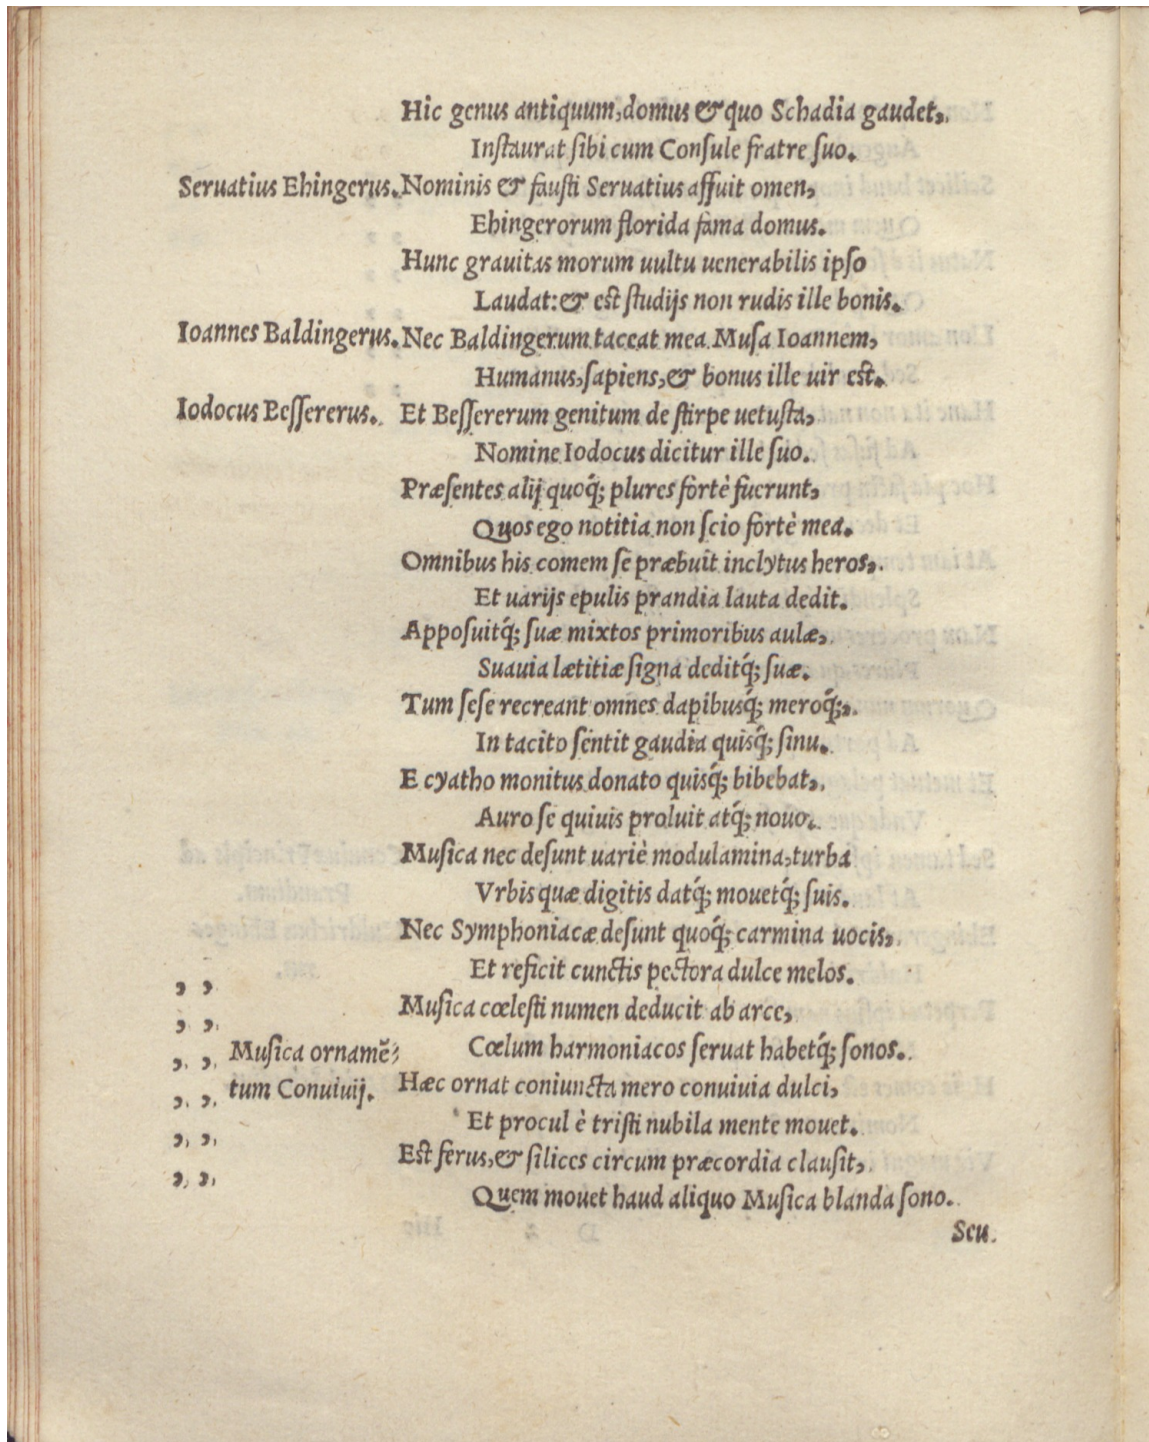 Hic genus antiquum, domus & quo Schadia gaudet,
Inſtaurat ſibi cum Conſule fratre ſuo.
Seruatius Ehingerus. Nominis & fauſti Seruatius affuit omen,
Ehingerorum florida fama domus.
Hunc grauitas morum uultu uenerabilis ipſo
Laudat: & eſt ſtudijs non rudis ille bonis.
Ioannes Baldingerus. Nec Baldingerum taceat mea Muſa Ioannem,
Humanus, ſapiens, & bonus ille uir eſt.
Iodocus Beſſererus. Et Beſſererum genitum de ſtirpe uetuſta,
Nomine Iodocus dicitur ille ſuo.
Præſentes alij quoq́; plures fortè fuerunt,
Quos ego notitia non ſcio fortè mea.
Omnibus his comem ſe præbuit inclytus heros,
Et uarijs epulis prandia lauta dedit.
Appoſuitq́; ſuæ mixtos primoribus aulæ,
Suauia lætitiæ ſigna deditq́; ſuæ.
Tum ſeſe recreant omnes dapibusq́; meroq́;,
In tacito ſentit gaudia quisq́; ſinu.
E cyatho monitus donato quisq́; bibebat,
Auro ſe quiuis proluit atq́; nouo.
Muſica nec deſunt uariè modulamina, turba
Vrbis quæ digitis datq́; mouetq́; ſuis.
Nec Symphoniacæ deſunt quoq́; carmina uocis,
Et reficit cunctis pectora dulce melos.
, , Muſica cœleſti numen deducit ab arce,
, , Muſica ornamẽ- Cœlum harmoniacos ſeruat habetq́; ſonos.
, , tum Conuiuij. Hæc ornat coniuncta mero conuiuia dulci,
, , Et procul è triſti nubila mente mouet.
, , Eſt ferus, & ſilices circum præcordia clauſit,
, , Quem mouet haud aliquo Muſica blanda ſono.
Seu